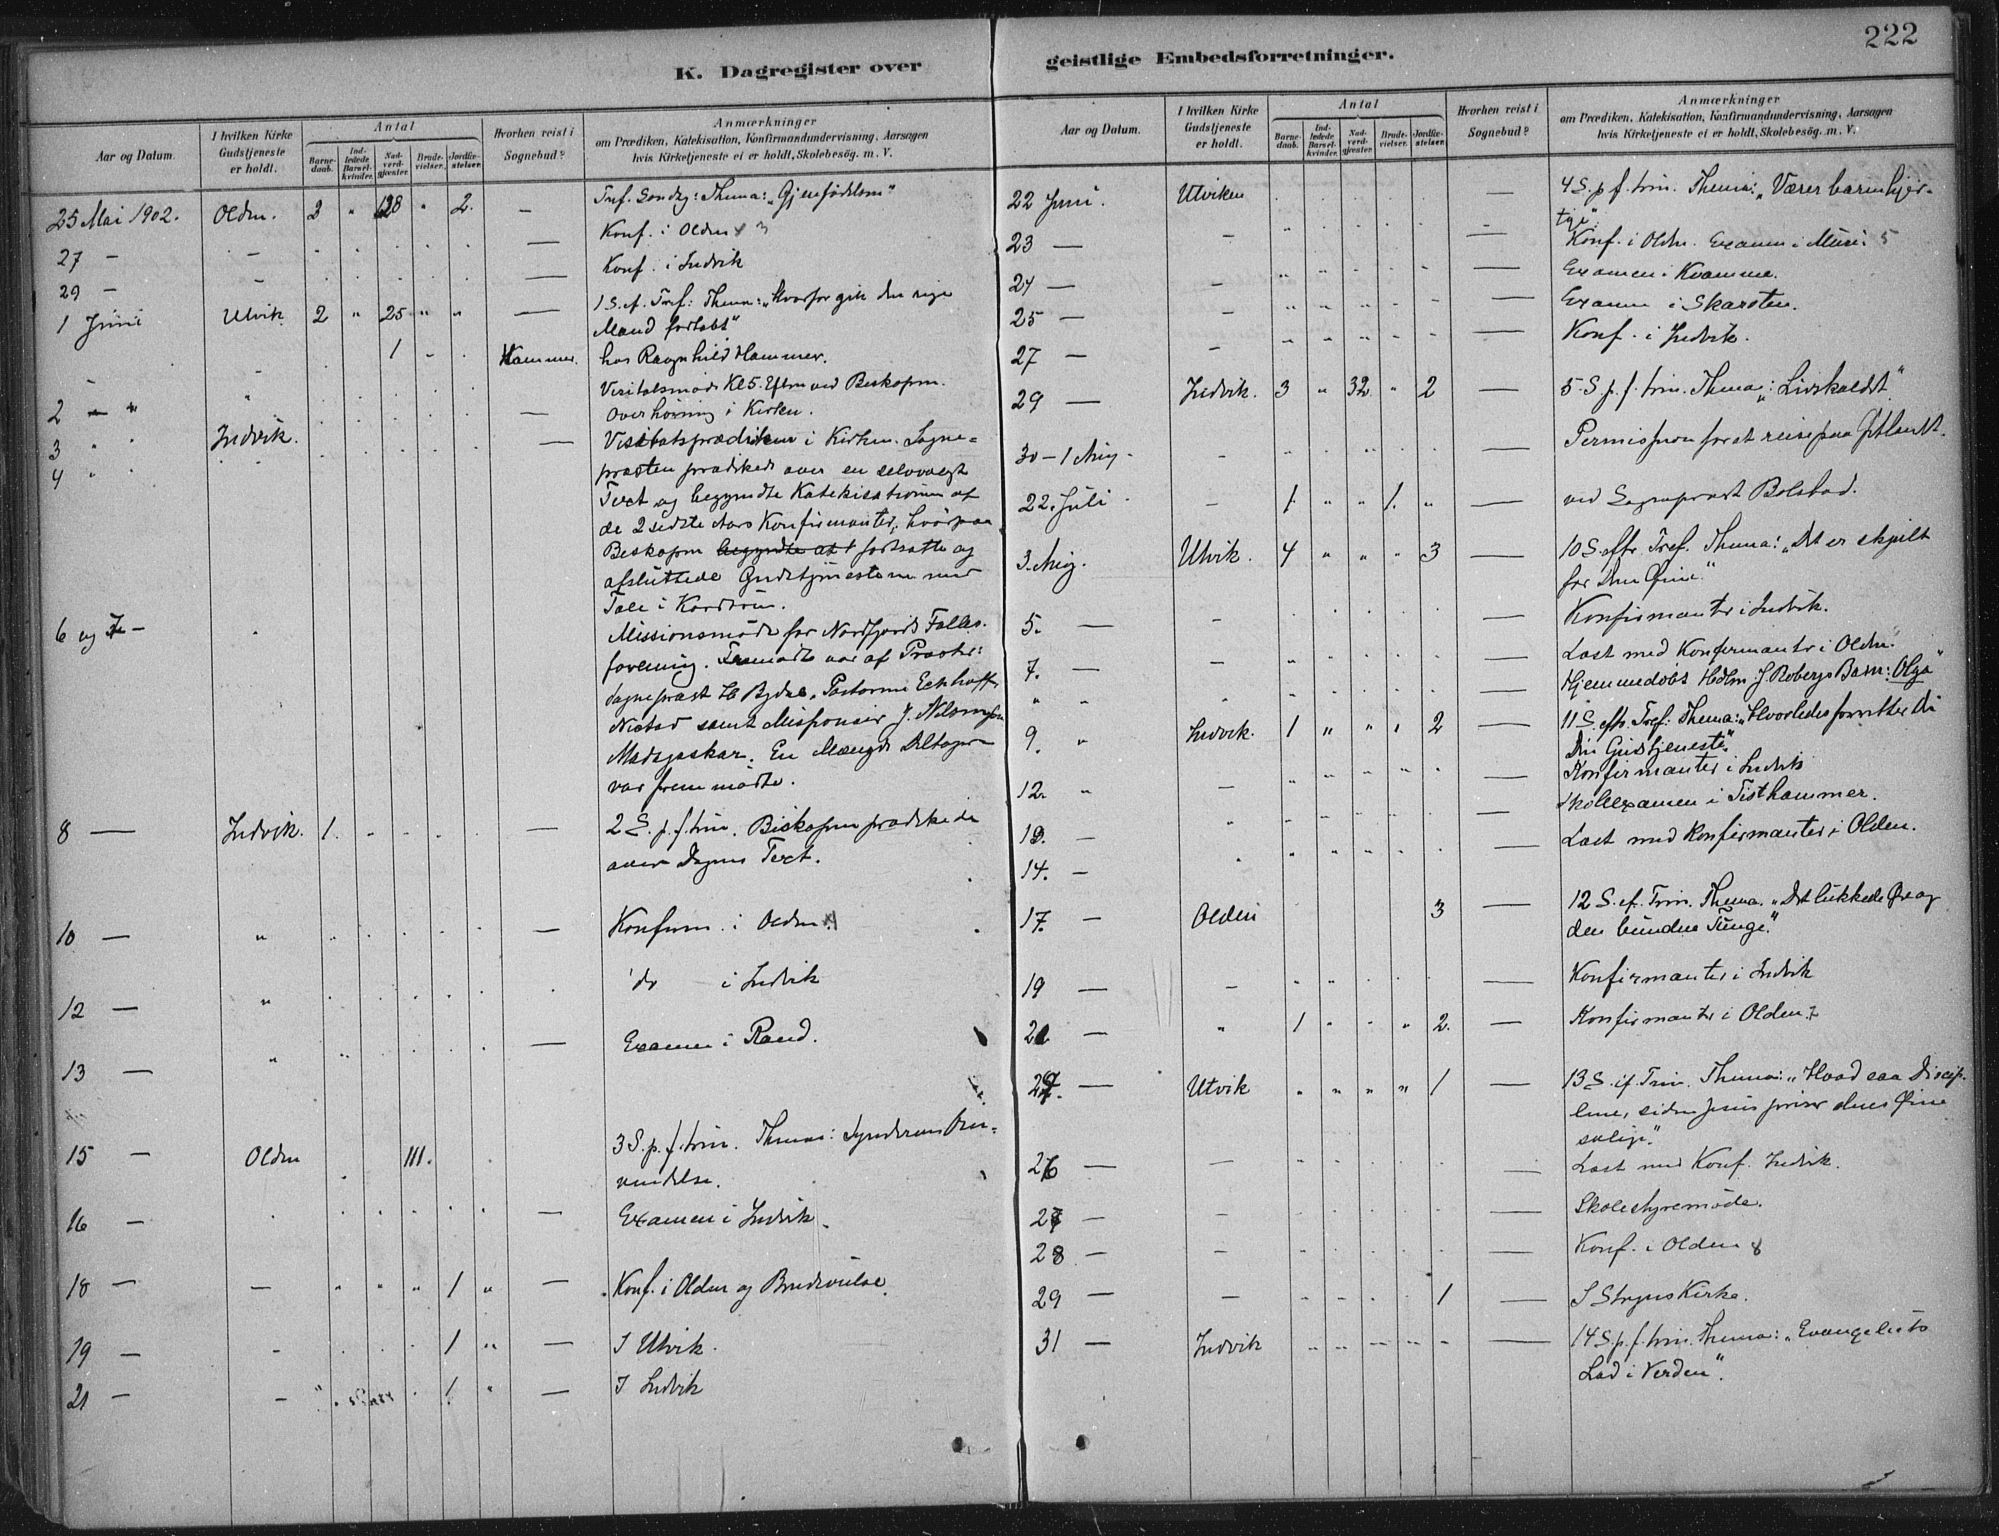 222
K. Dagregister over
geistlige Embedsforretninger.
Aar og Datum.
I hvilken Kirke Gudstjeneste er holdt.
Antal
Barne-daab.
Ind-ledede Barsel-kvinder.
Nad-verd-gjæster.
Brude-vielser.
Jordfæ-stelser.
Hvorhen reist i Sognebud?
Anmærkninger
om Prædiken, Katekisation, Konfirmandundervisning, Aarsagen
hvis Kirketjeneste ei er holdt, Skolebesög. m. V.
25 Mai 1902. Olden. 128 " 2. — Tref. Søndg: Thema: "Gjenfödelsen"
27 — — — Konf. i Olden
29 — — — Konf. i Indvik
1 Juni Utvik 2 " 25 " " — 1 S. ef. Tref: Thema: "Hvorfor gik den rige
Mand fortabt"
1 Hammer. hos Ragnhild Hammer.
Visitatsmøde Kl 5. Eftm ved Biskopen.
2 — " " — Overhøring i Kirken.
3 " " Indvik. — Visitatsprædiken i Kirken. Sogne-
4 " præsten prædikede over en selvvalgt
Text og begyndte Katekisationen af
de 2 sidste Aars Konfirmanter, hvorpaa
Biskopen begyndte at fortsatte og
afsluttede Gudstjenesten med
Tale i Kordøren.
6 og 7 — Missionsmöde for Nordfjords Fælles-
forening. Fremødte var af Præster:
Sogneprest H Bydal, Pastorerne Eckhoff
samt Missionær J. Nilsen fra
Madagaskar. En Mængde Deltagere
var fremmödte.
8 — Indvik. 1. — 2 S. p. f. trin. Biskopen prædikede
over Dagens Text.
10 — " — Konfirm. i Olden
12 — " do i Indvik
13 — " — Examen i Rand.
15 — Olden 111. 3 S. p. f. trin. Thema: Synderens Om-
vendelse.
16 — — Examen i Indvik.
18 — — " " " 1 " — Konf. i Olden og Brudevielse.
19 — 1 " — I Utvik.
21 — — 1 " — I Indvik
Aar og Datum.
I hvilken Kirke Gudstjeneste er holdt.
Antal
Barne-daab.
Ind-ledede Barsel-kvinder.
Nad-verd-gjæster.
Brude-vielser.
Jordfæ-stelser.
Hvorhen reist i Sognebud?
Anmærkninger
om Prædiken, Katekisation, Konfirmandundervisning, Aarsagen
hvis Kirketjeneste ei er holdt, Skolebesög. m. V.
22 Juni Utviken — 4 S. p. f. trin. Thema: "Værer barmhjer-
tige"
23 — — — Konf. i Olden. Examen i Muri 5
24 — — — Examen i Kvamme.
25 — — — Examen i Skarsten.
27 — — — Konf. i Indvik.
29 — Indvik. 3 " 32 " 2 — 5 S. p. f. trin. Thema: "Livskaldet"
30 — 1 Aug. — — Permission for at reise paa
22. Juli — 1. " " 1. " — ved Sogneprest Bolstad.
3. Aug. Utvik. 4 " " " 3 — 10 S. eftr. Tref. Thema: "Det er skjult
for Dine Øine."
5. — — — Konfirmanter i Indvik.
7. — — — Læst med Konfermanter i Olden.
" " — Hjemmedöbt Hdlm. J Robergs Barn: Olga
9. " Indvik. 1 " " " 2 — 11 S. eftr. Tref: Thema: "Hvorledes forretter Du
Din Gudstjeneste."
12. " — — Konfirmanter i Indvik
13. — " — Skolexamen i Tisthammer.
14. — — Læst med Konfirmanter i Olden.
17. — Olden 3 — 12 S. ef. Trin. Thema. "Det lukkede Øre og
den bundne Tunge."
19 — — — Konfirmanter i Indvik
21 — " 1 " " " 2. — Konfirmanter i Olden. 7
24. — Utvik " " " " 1 — 13 S. ef. Trin. Thema: "Hvad saa Discip-
lene, siden Jesus priser deres Øine
salige."
26 — — — Læst med Konf. Indvik.
27 — — — Skolestyremøde.
28 — — — Konf. i Olden 8
29 — — 1 — I Stryns Kirke.
31 — Indvik — 14 S. p. f. trin. Thema: "Evangeliets
Lod i Verden".